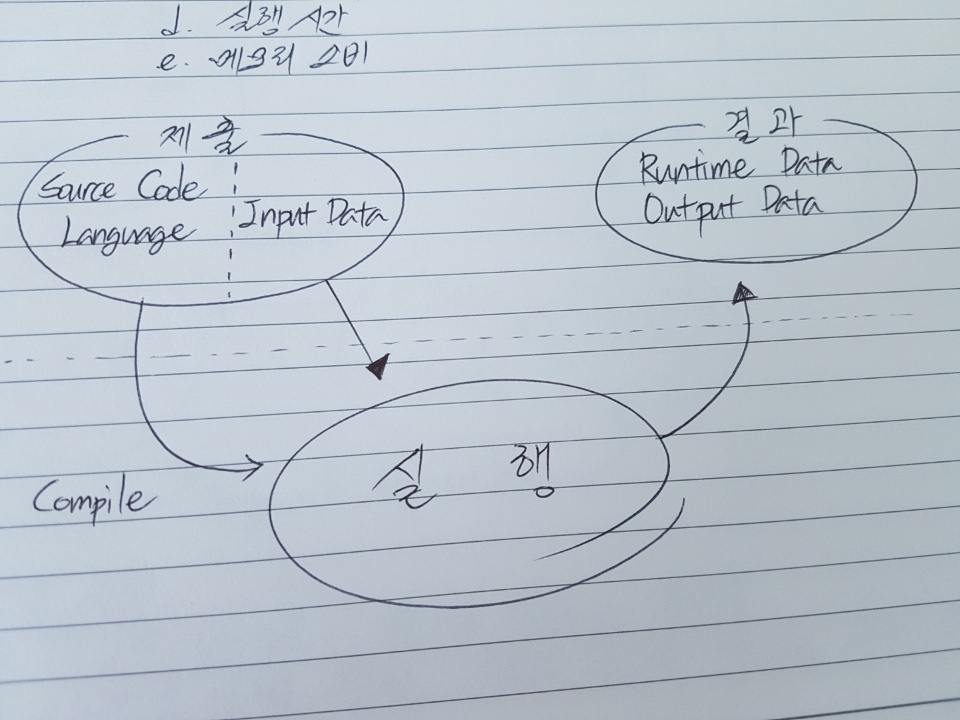 d. 실행 시간
e. 메모리 소비
제출
Source Code
Language
Input Data
결과
Runtime Data
Output Data
Compile
실행